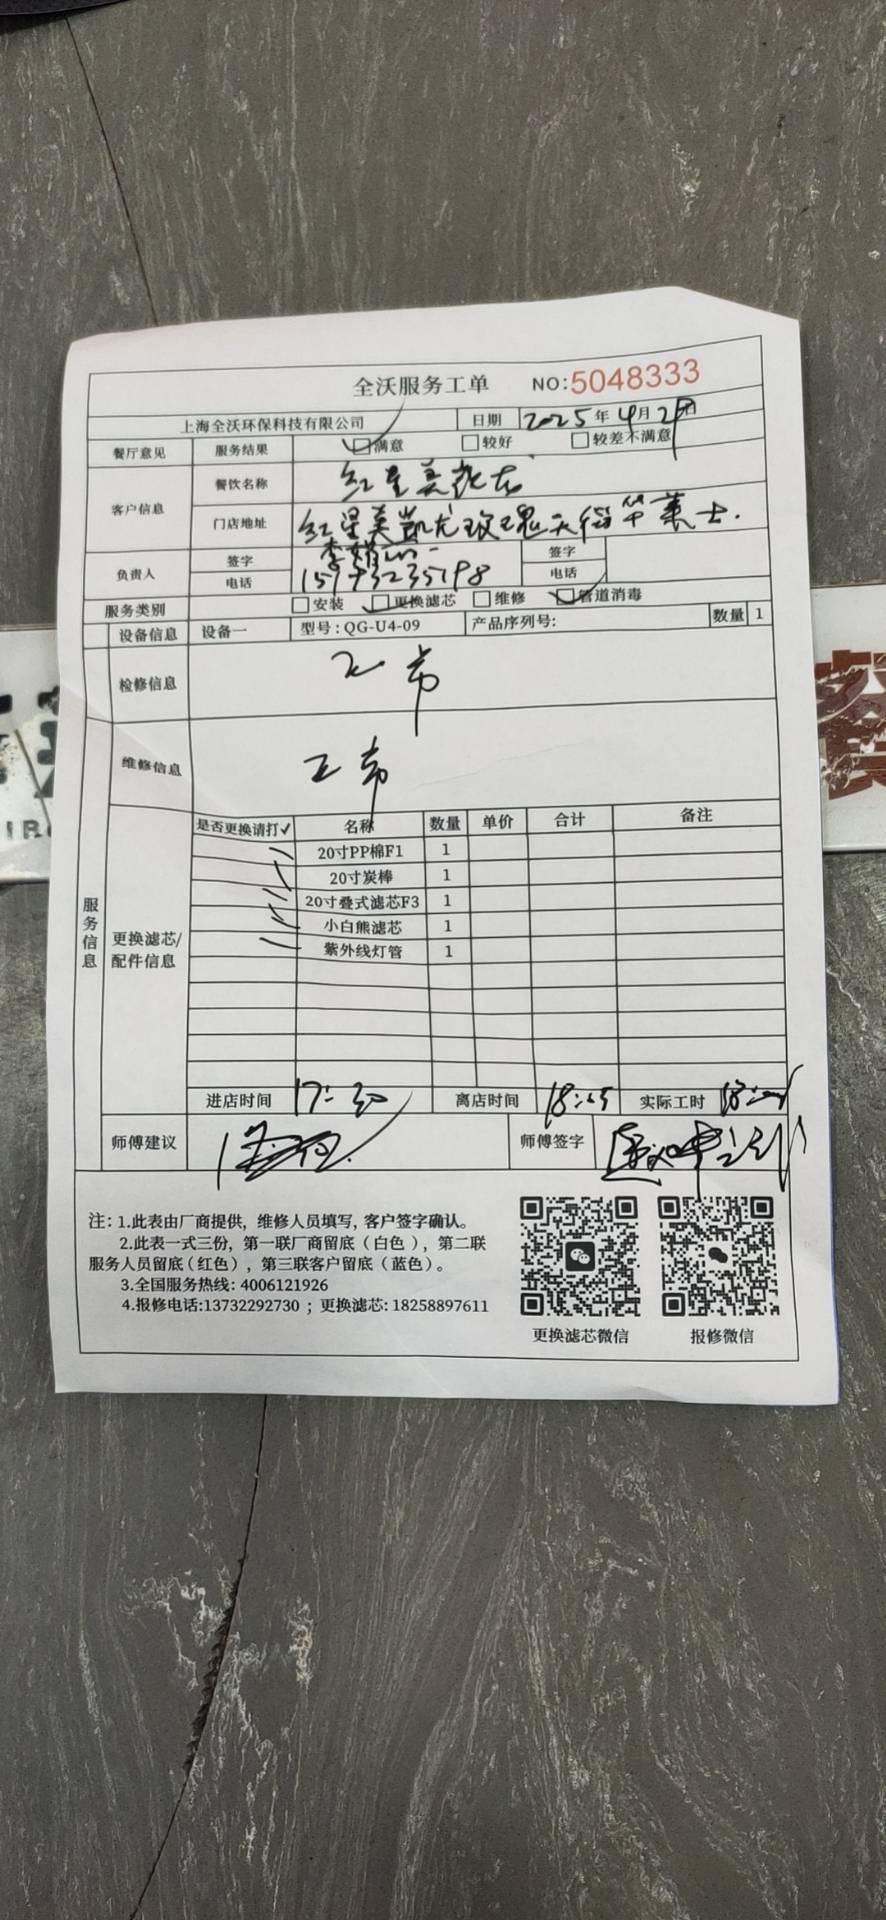 全沃服务工单 NO:5048333
上海全沃环保科技有限公司 日期 2025年4月2日
餐厅意见 服务结果 满意 较好 较差不满意
客户信息 餐饮名称 红星美凯龙
门店地址 红星美凯龙玫瑰天街华莱士.
负责人 签字 签字
电话 电话
服务类别 安装 更换滤芯 维修 管道消毒
设备信息 设备一 型号:QG-U4-09 产品序列号: 数量 1
检修信息 正常
维修信息 正常
服务信息 更换滤芯/配件信息
是否更换请打✓ 名称 数量 单价 合计 备注
20寸PP棉F1 1
20寸炭棒 1
20寸叠式滤芯F3 1
小白熊滤芯 1
紫外线灯管 1
进店时间 17:30 离店时间 实际工时
师傅建议 师傅签字
注:1.此表由厂商提供，维修人员填写,客户签字确认。
2.此表一式三份，第一联厂商留底(白色)，第二联
服务人员留底(红色)，第三联客户留底(蓝色)。
3.全国服务热线: 4006121926
4.报修电话:13732292730 ; 更换滤芯: 18258897611
更换滤芯微信 报修微信